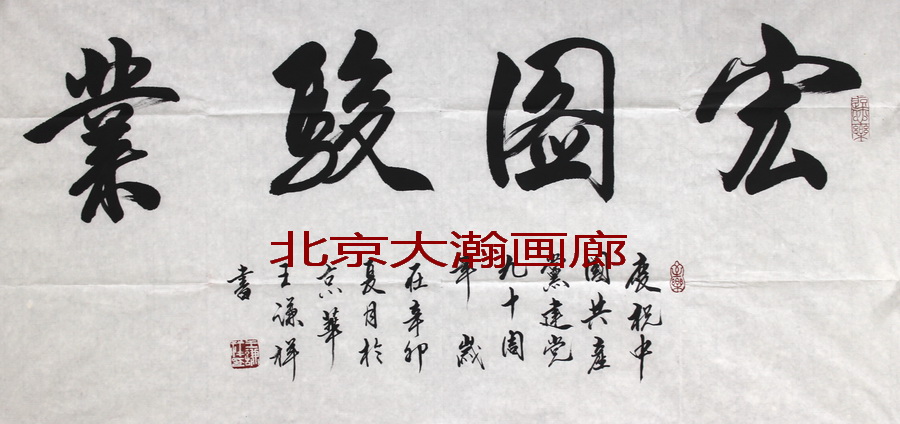 宏圖駿業
慶祝中
國共產
黨建党
九十周
年歲
在辛卯
夏月於
京華
王谦祥
書
北京大瀚画廊